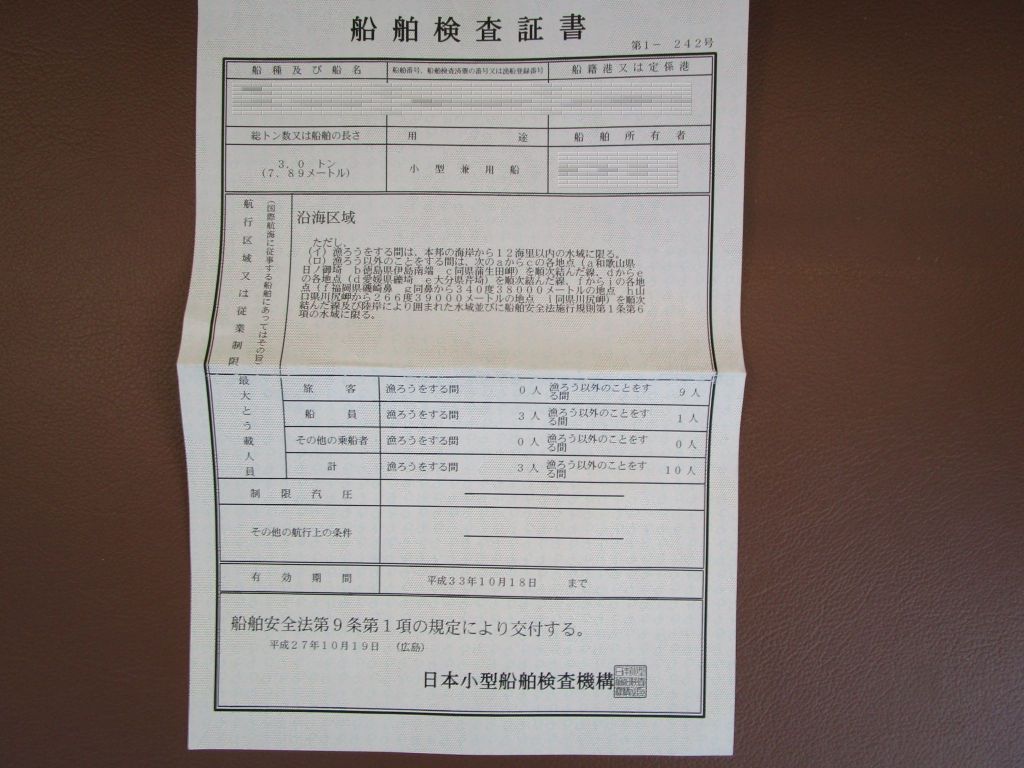 船舶検査証書
第1－ 242号
船種及び船名 船舶番号、船舶検査済票の番号又は漁船登録番号 船籍港又は定係港
総トン数又は船舶の長さ 用途 船舶所有者
3.0 トン
(7.89メートル) 小型兼用船
航行区域又は従業制限
(国際航海に従事する船舶にあってはその旨)
沿海区域
ただし、
(イ)漁ろうをする間は、本邦の海岸から12海里以内の水域に限る。
(ロ)漁ろう以外のことをする間は、次のaからcの各地点(a和歌山県
日ノ御埼 b徳島県伊島南端 c同県蒲生田岬)を順次結んだ線、dからe
の各地点(d愛媛県礫埼 e大分県芹埼)を順次結んだ線、fからiの各地
点(f福岡県磯崎鼻 g同鼻から340度38000メートルの地点 h山
口県川尻岬から266度39000メートルの地点 i同県川尻岬)を順次
結んだ線及び陸岸により囲まれた水域並びに船舶安全法施行規則第1条第6
項の水域に限る。
最大とう載人員
旅客 漁ろうをする間 0人 漁ろう以外のことをする間 9人
船員 漁ろうをする間 3人 漁ろう以外のことをする間 1人
その他の乗船者 漁ろうをする間 0人 漁ろう以外のことをする間 0人
計 漁ろうをする間 3人 漁ろう以外のことをする間 10人
制限汽圧
その他の航行上の条件
有効期間 平成33年10月18日 まで
船舶安全法第9条第1項の規定により交付する。
平成27年10月19日 (広島)
日本小型船舶検査機構